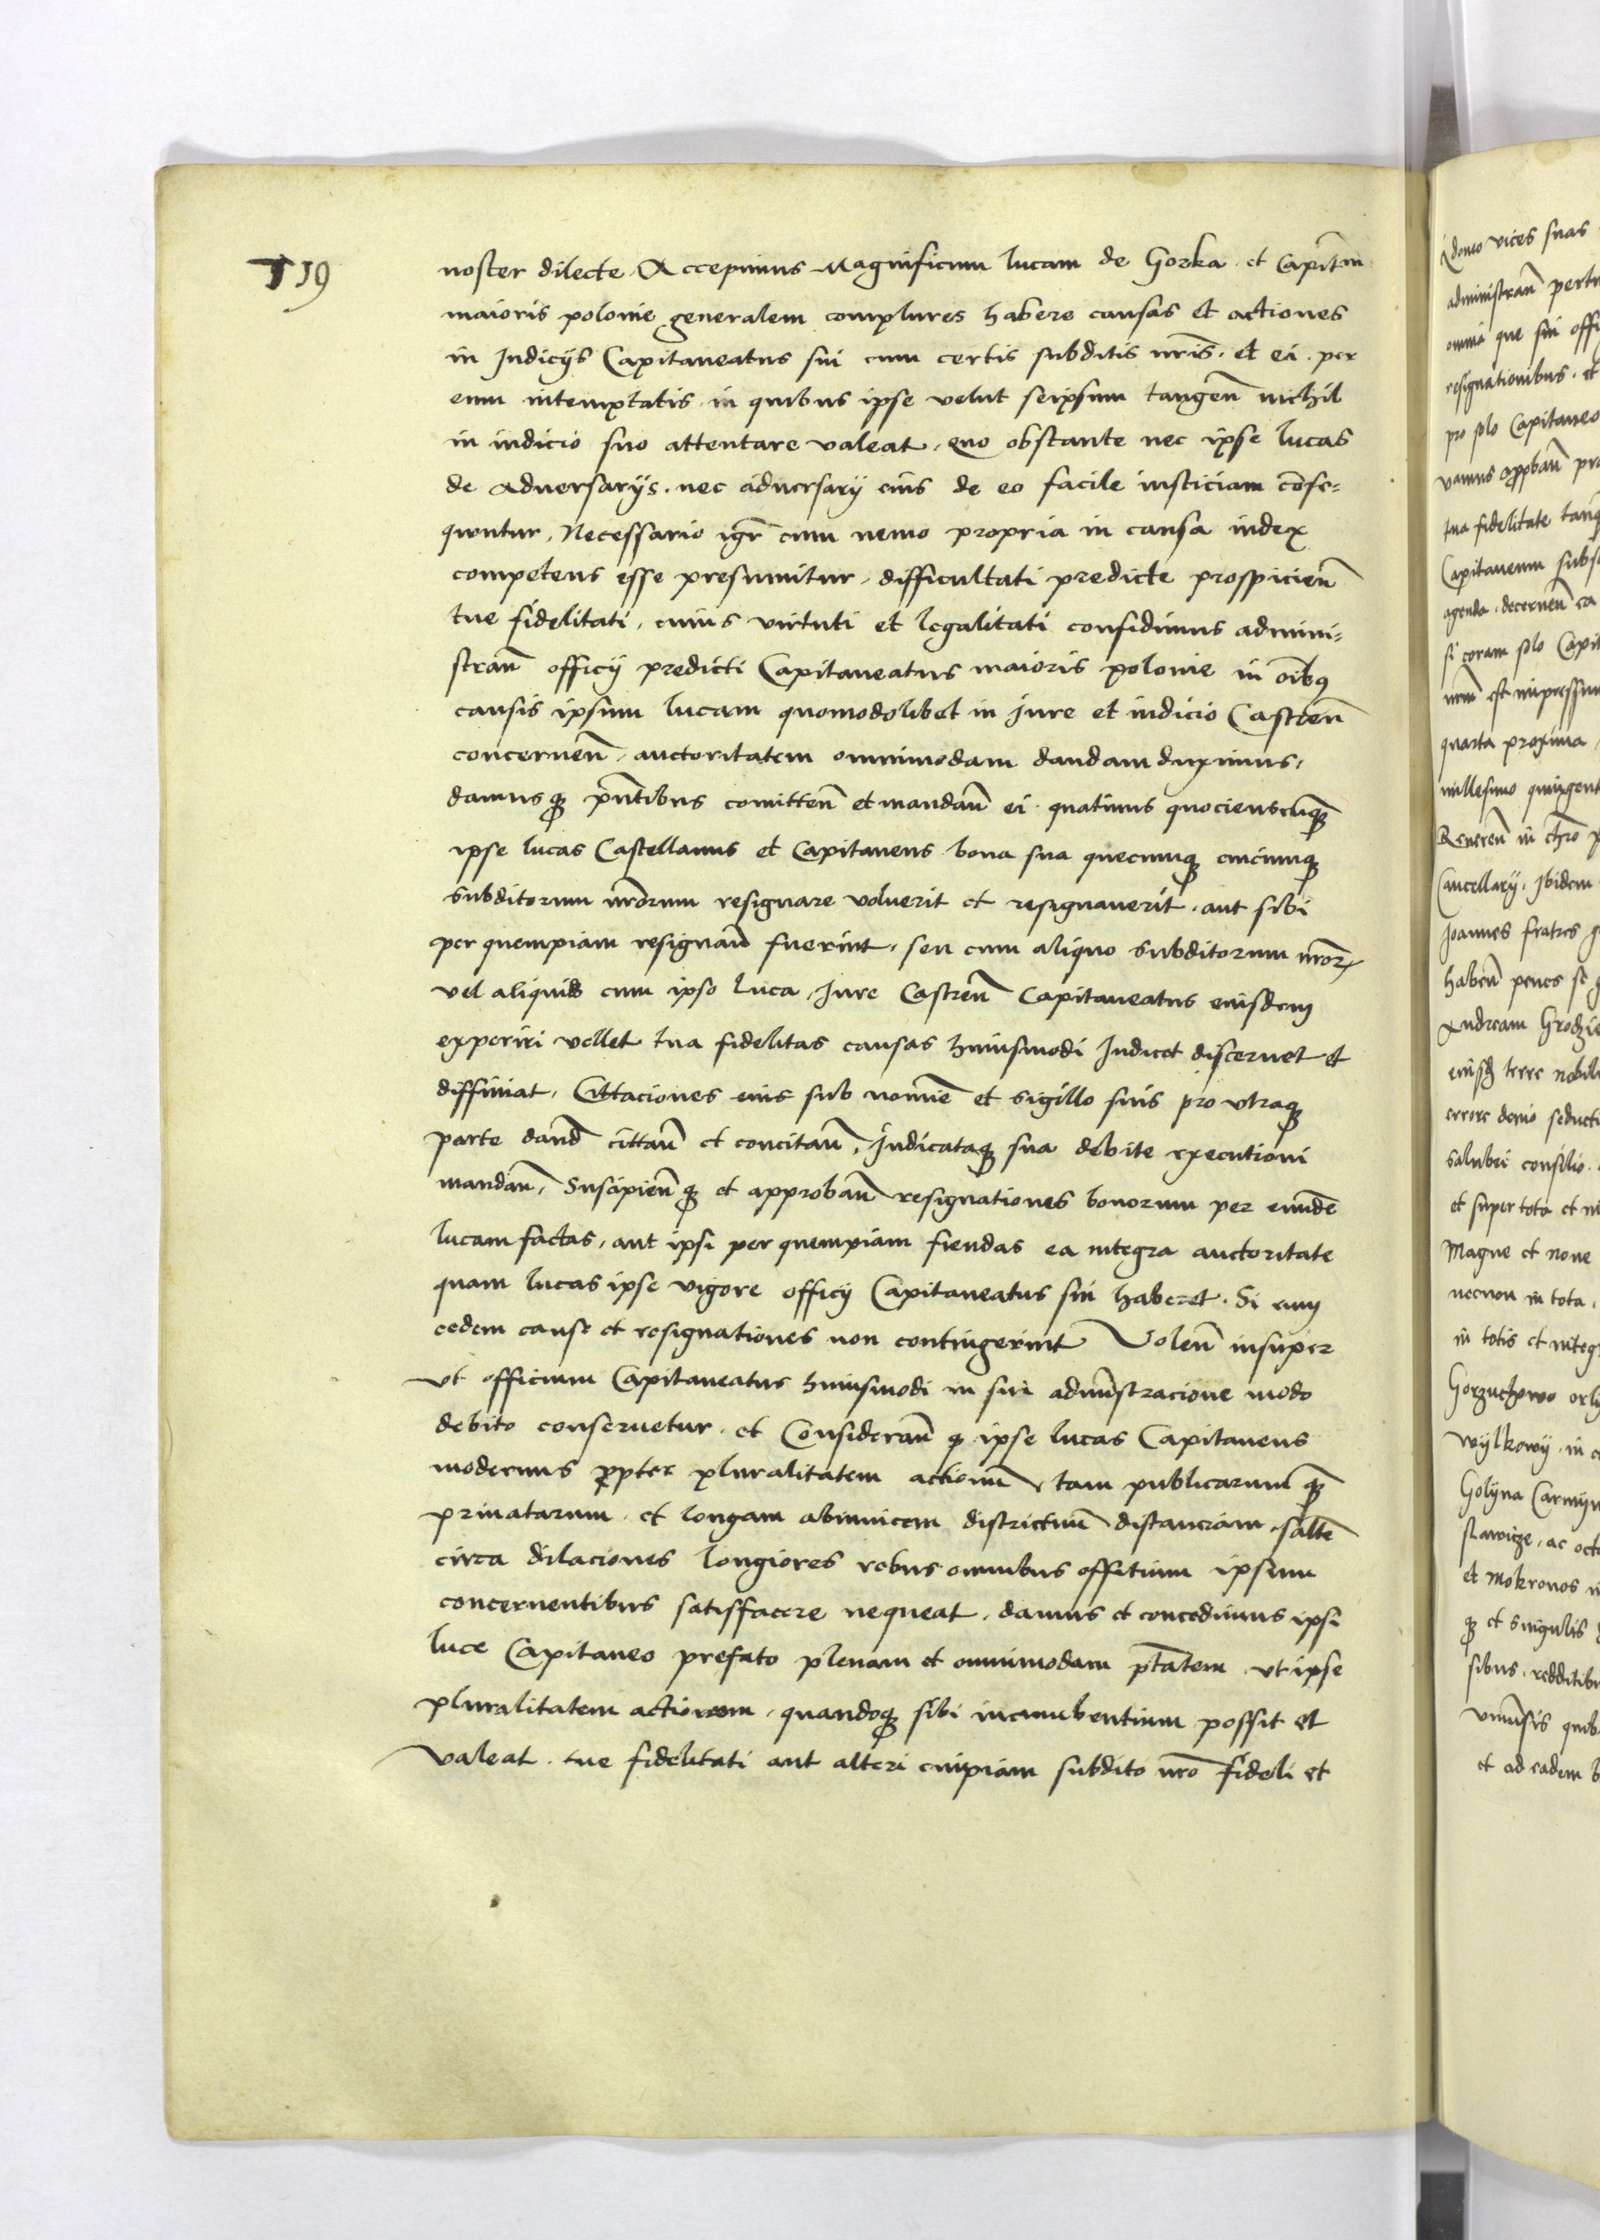 119
noster dilecte. Accepimus Magnificum lucam de Gorka et Capitm̄
maioris polonie generalem complures habere causas et actiones
in Judicijs Capitaneatus sui cum certis subditis nr̄is. et ei. per
eum intemptatis in quibus ipse velut seipsum tangen̄ nichil
in iudicio suo attentare valeat. Quo obstante nec ipse lucas
de Aduersarijs. nec aduersarij eius de eo facile iusticiam conse=
quntur. Necessario igr̄ cum nemo propria in causa iudex
competens esse presumitur. difficultati predicte prospicien̄
tue fidelitati, cuius virtuti et legalitati confidimus admini=
stran̄ officij predicti Capitaneatus maioris polonie in oībꝰ
causis ipsum lucam quomodolibet in jure et iudicio Castren̄
concernen̄. auctoritatem omnimodam dandam duximus.
damusqꝫ pn̄tibus comitten̄ et mandan̄ ei. quatinus quocienscunqꝫ
ipse lucas Castellanus et Capitaneus bona sua quecumqꝫ cuicumqꝫ
subditorum nr̄orum resignare voluerit et resignauerit. aut sibi
per quempiam resignan̄ fuerint. seu cum aliquo subditorum nr̄orꝝ
vel aliquis cum ipso luca. Jure Castren̄ Capitaneatus eiusdem
experiri vellet tua fidelitas causas huiusmodi Judicet discernet et
diffiniat. Cittaciones eius sub nomīe et sigillo suis pro vtraqꝫ
parte dand̄ cittan̄ et concitan̄. Judicataqꝫ sua debite executioni
mandan̄. Suscipien̄qꝫ et approban̄ resignationes bonorum per eundē
lucam factas. aut ipsi per quempiam fiendas ea integra auctoritate
quam lucas ipse vigore officij Capitaneatus sui haberet. Si eum
eedem cause et resignationes non contingerint Volen̄ insuper
vt officium Capitaneatus huiusmodi in sui admīstracione modo
debito conseruetur. et Consideran̄ ꝙ ipse lucas Capitaneus
modernus ꝓpter pluralitatem actionū, tam publicarum qꝫ
priuatarum. et longam abinuicem districtuū distanciam. saltē
circa dilaciones longiores rebus omnibus offitium ipsum
concernentibus satisfacere nequeat. damus et concedimus ipsi
luce Capitaneo prefato plenam et omnimodam ptātem. vt ipse
pluralitatem actionem. quandoqꝫ sibi incumbentium possit et
valeat. tue fidelitati aut alteri cuipiam subdito nr̄o fideli et
vices suas
administran̄
omnia que sui
resignationibus. et
pro solo Capitaneo
tua fidelitate
Capitaneum
agenda. decernen̄
si coram solo
quarta proxima
millesimo
Cancellarij. Ibidem
Joannes fratres
haben̄ penes se
Andream
eiusd̄ terre
errore
consilio
et super tota et
Magne et none
necnon in tota
in totis et
Wylkowy. in
Golyna
ac
et Mokronos
qꝫ et singulis
sibus.
et ad eadem